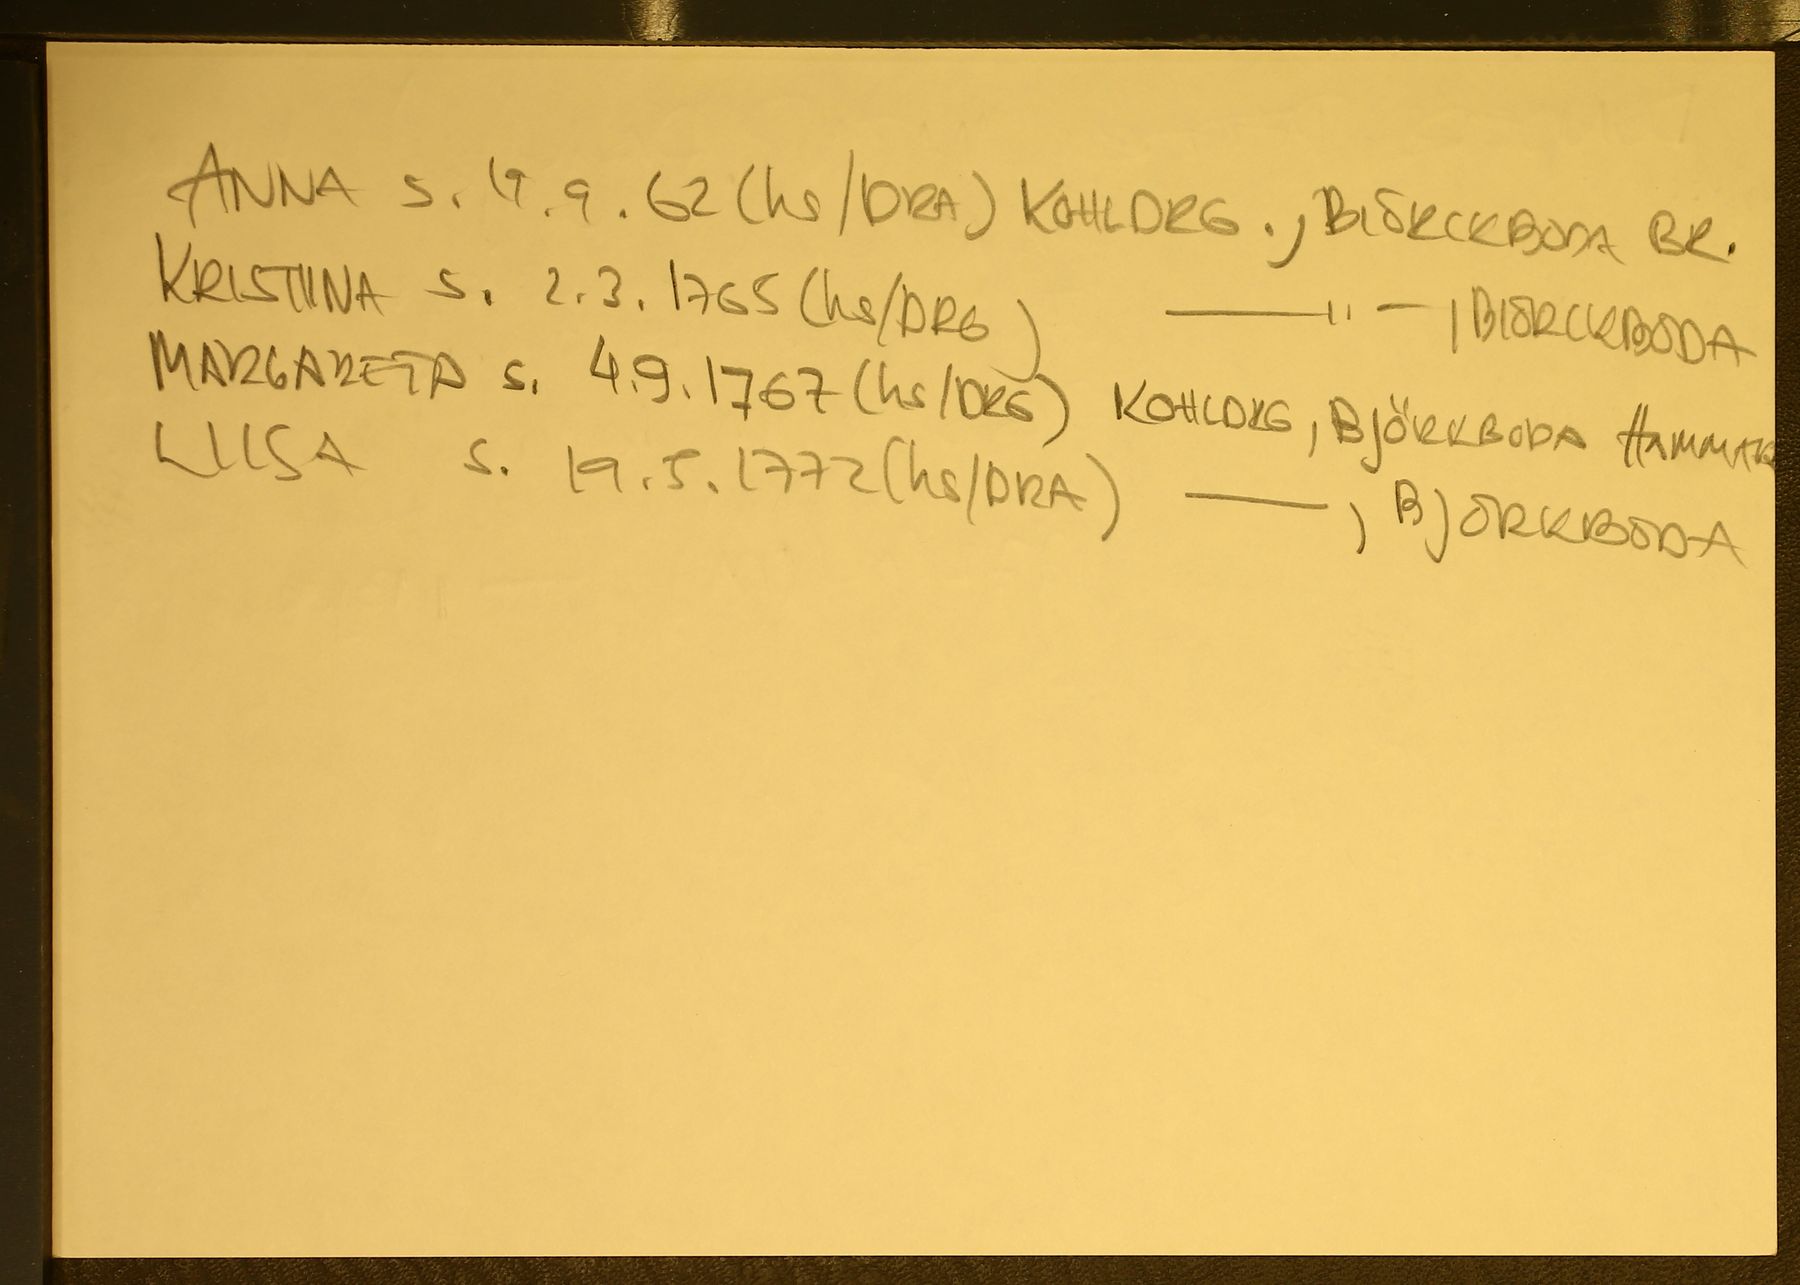 ANNA s. 4.9.62 (hs/DRA) KOHLDRG., BIÖRCKBODA BR.
KRISTIINA s. 2.3.1765 (hs/DRG) —"— , BIÖRCKBODA
MARGARETA s. 4.9.1767 (hs/DRG) KOHLDRG, BJÖRKBODA HAMMAR
LIISA s. 19.5.1772 (hs/DRA) — , BJÖRKBODA